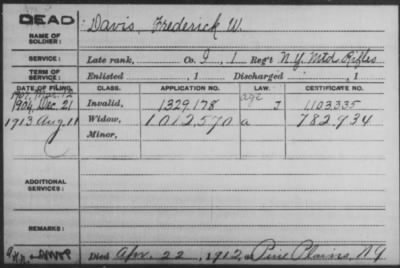 DEAD
Davis, Frederick W.
NAME OF
SOLDIER:
SERVICE: Late rank, Co. I, 1 Reg't N.Y. Mtd. Rifles
TERM OF
SERVICE: Enlisted , 1 Discharged , 1
DATE OF FILING. CLASS. APPLICATION NO. LAW. CERTIFICATE NO.
age
1904, Dec. 21 Invalid, 1329,178 1103,335
1913 Aug. 11 Widow, 1012,570 a 782,934
Minor,
ADDITIONAL
SERVICES:
REMARKS:
Died Apr. 22, 1912, at Pine Plains, N.Y.